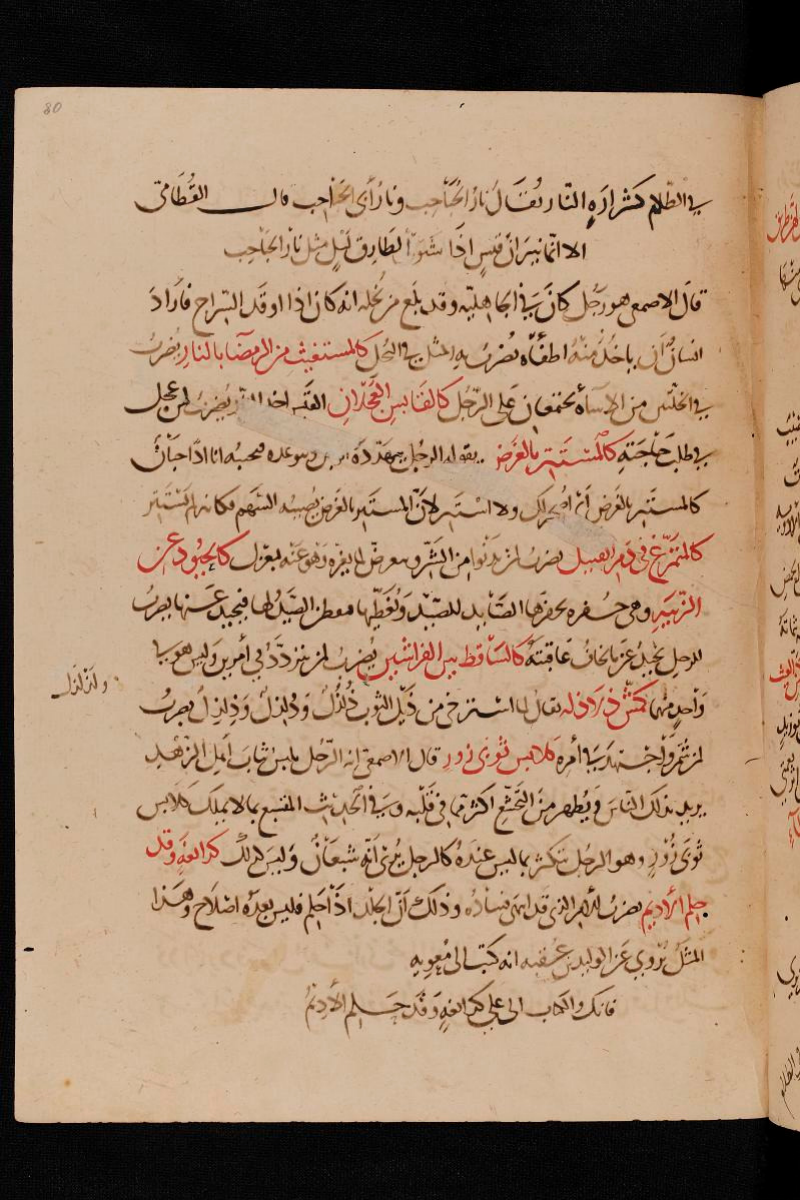 80
في الظلام كشرارة النار يقال نار الحباحب ونار أبي الحباحب قال القُطَامي
الا انما نيران قيس اذا شتوا لطارق ليل مثل نار الحباحب
قال الاصمعي هو رجل كان في الجاهلية وقد بلغ من بُخله انه كان اذا اوقد السراج فأراد
انسان أن ياخذ منه اطفأه يضرب به المثل في البخل كالمستغيث من الرمضا بالنار يُضرب
في الخلتين من الاساة يجتمعان على الرجل كالقابس العَجلان القبس يضرب لمن عجل
في طلب حاجته كالمستتر بالغرض يقوله الرجل يتهدده
كالمستتر بالغرض أي ولا استتر لان المستتر بالغرض يُصيبه السهم فكانه لم يستتر
كالمتمرّغ في دم القتيل يضرب لمن يدنوا من الشر ويتعرض لما يضره وهو عنه بمعزل كالحيود عن
الزبية وهي حفرة يحفرها الصايد للصيد ويُغطّيها فيحيد عنها يضرب
للرجل يحيد عن ما يخاف عاقبته كالساقط بين الفراشين يُضرب لمن يتردد في أمرين وليس هو في
واحد منهما كمش ذلاذله يقال لما استرخى من ذيل الثوب ذُلذُل وذَلذَل وذِلذِل يضرب
ولذلذل
لمن تشمر واجتهد في أمره كلابس ثوبي زور قال الاصمعي انه الرجل يلبس ثياب اهل الزهد
يريد بذلك الناس ويُظهر من التخشع اكثر مما في قلبه وفي الحديث المتشبع بما لا يملك كلابس
ثوبي زور وهو الرجل يتكثر بما ليس عنده كالرجل يُرى أنه شبعان وليس كذلك كدابغة وقد
حلم الأديم يضرب للأمر الذي قد انتهى فساده وذلك أن الجلد اذا حلم فليس بعده اصلاح وهذا
المثل يُروي عن الوليد بن عقبه انه كتب الى معوية
فانك والكتاب الى علي كدابغة وقد حَلِم الأديمُ